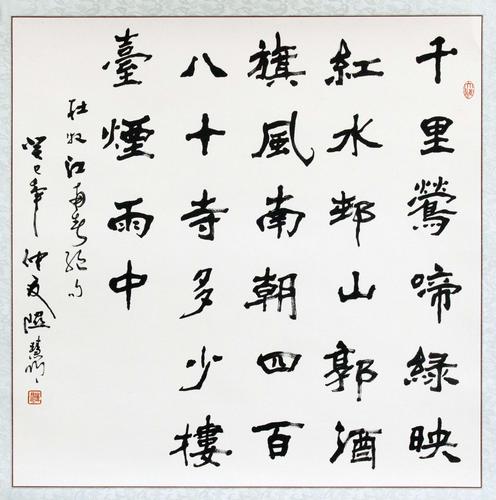 千里鶯啼綠映
紅水邨山郭酒
旗風南朝四百
八十寺多少樓
臺煙雨中
杜牧江南春絕句
癸巳年仲夏